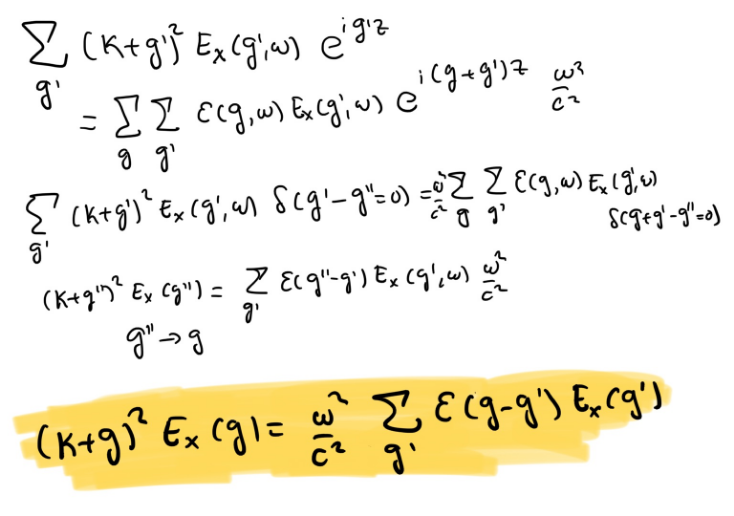 ∑_{g'} (K+g')² Eₓ(g',ω) e^{ig'z}
= ∑_g ∑_{g'} ε(g,ω) Eₓ(g',ω) e^{i(g+g')z} ω²/c²
∑_{g'} (K+g')² Eₓ(g',ω) δ(g'-g''=0) = ω²/c² ∑_g ∑_{g'} ε(g,ω) Eₓ(g',ω)
δ(g+g'-g''=0)
(K+g'')² Eₓ(g'') = ∑_{g'} ε(g''-g') Eₓ(g',ω) ω²/c²
g'' → g
(K+g)² Eₓ(g) = ω²/c² ∑_{g'} ε(g-g') Eₓ(g')